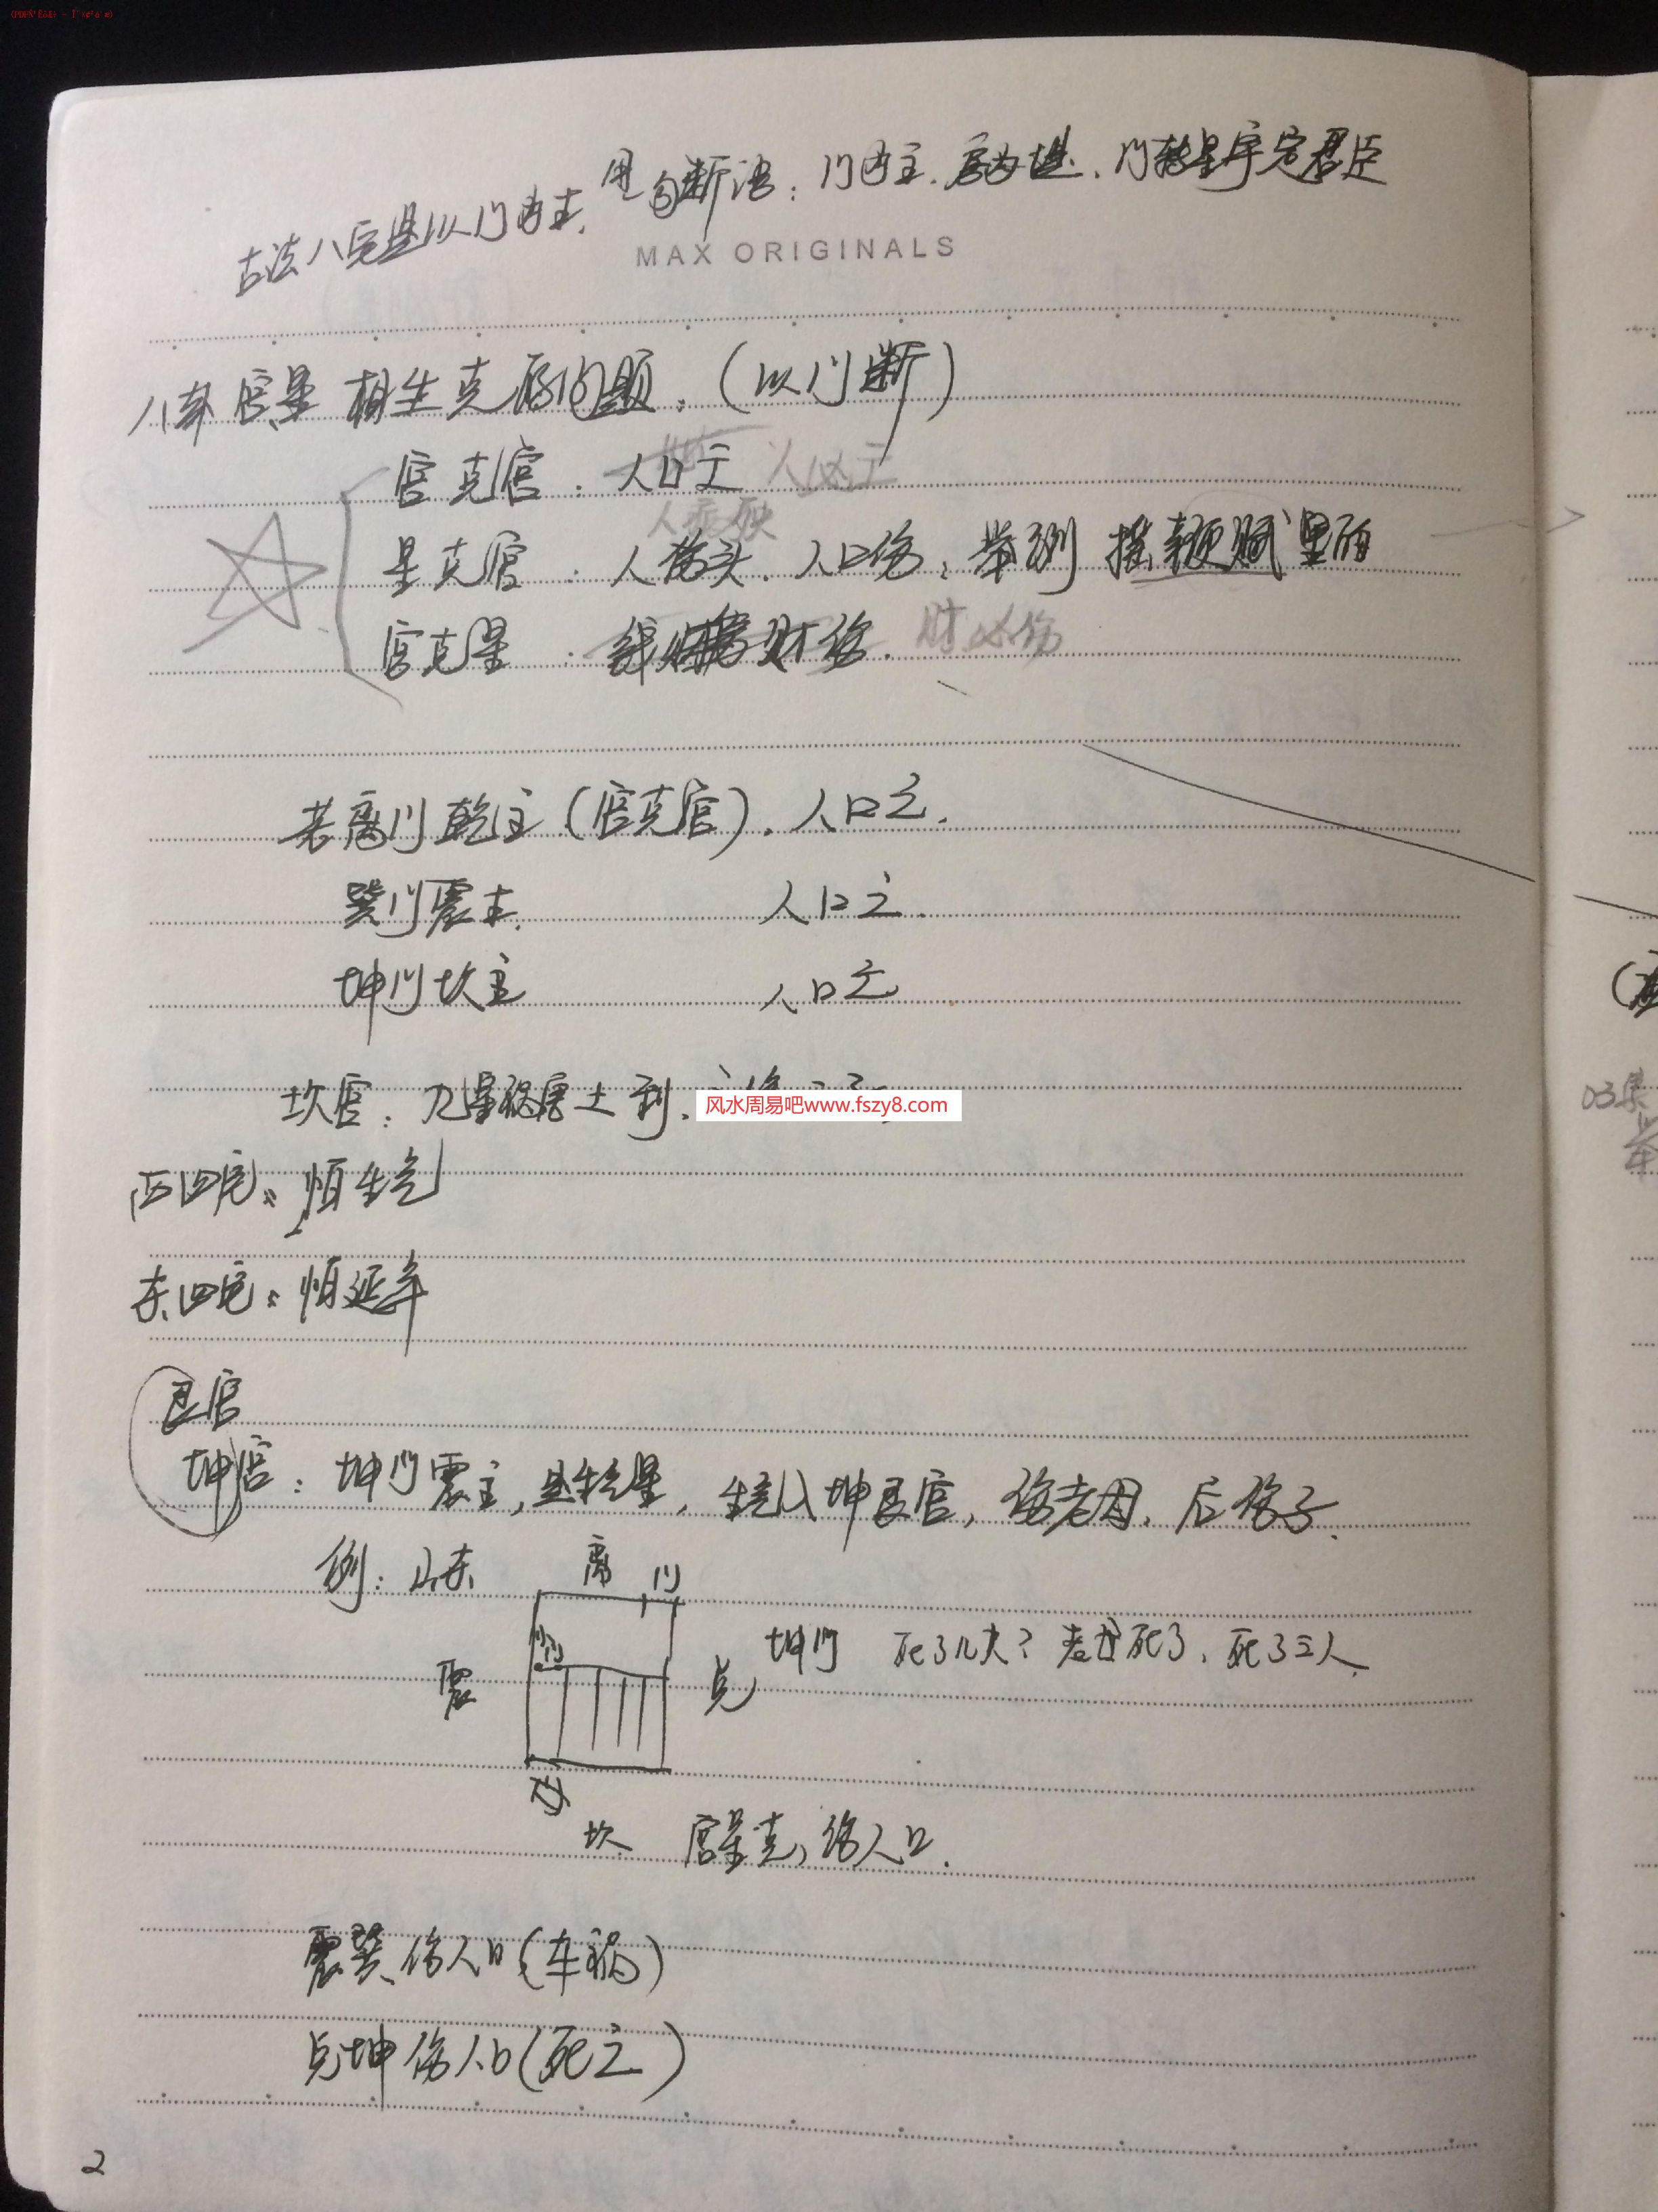 古法八宅是以门为主,
用句断语:门为主.房为.门定君臣
MAX ORIGINALS
八卦宫星相生克的问题.(以门断)
宫克宫:人口亡 人必亡
人痛殃
星克宫:人, 人口伤, 举例 摇鞭赋里面
宫克星: 财伤. 财必伤
若离门乾主(宫克宫), 人口亡.
巽门震主, 人口亡.
坤门坎主 人口亡
坎宫:九星祸唐土到,
风水周易吧www.fszy8.com
西四宅:怕生气
东四宅:怕延年
艮宫
坤宫:坤门震主,生气入坤艮宫,伤老母,后伤子.
例:山东
离
门
坤门 死了几夫?老母死了,死了三人.
震
兑
坎
宫星克,伤人口.
震巽,伤人口(车祸)
兑坤伤人口(死亡)
2
03集